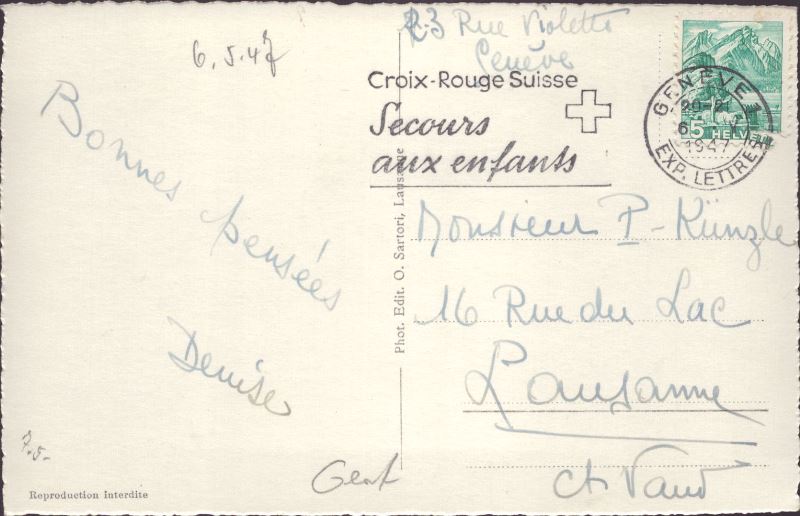 6.5.47
23 Rue Violette
Genève
Croix-Rouge Suisse
Secours
aux enfants
GENÈVE 1
20-21
1947
EXP. LETTRES
5 HELVETIA
Bonnes pensées
Denise
Monsieur P. Künzle
16 Rue du Lac
Lausanne
ct Vaud
Phot. Edit. O. Sartori, Lausanne
7.5-
Genf
Reproduction interdite